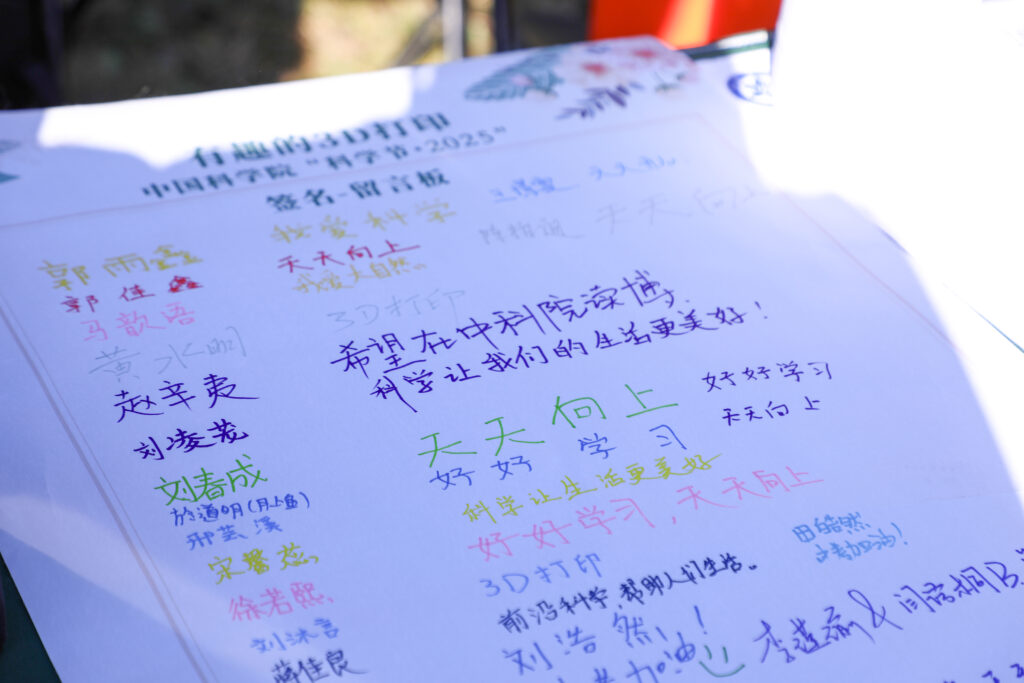 有趣的3D打印
中国科学院“科学节·2025”
签名-留言板
天天
我爱科学
天天向上
郭雨鑫
天天向上
郭佳鑫
我爱大自然。
马歆语
3D打印
黄水明
希望在中科院读博,
科学让我们的生活更美好!
赵辛夷
好好学习
天天向上
刘凌
天天向上
好好学习
刘春成
科学让生活更美好
好好学习,天天向上
邢芸溪
3D打印
宋馨蕊
前沿科学,帮助人们生活。
徐若熙
刘浩然!
加油!
刘沐言
蒋佳良